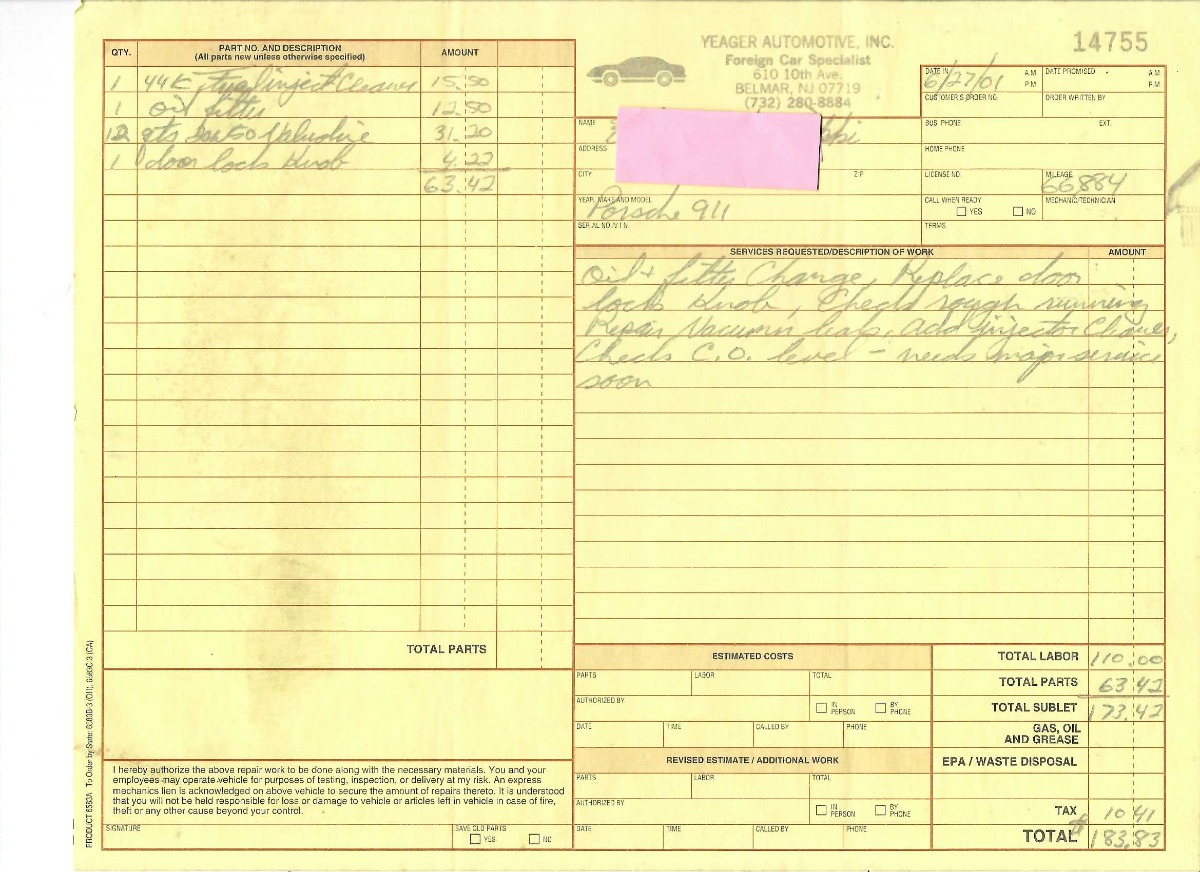 YEAGER AUTOMOTIVE, INC.
Foreign Car Specialist
610 10th Ave.
BELMAR, NJ 07719
(732) 280-8884
14755
QTY. PART NO. AND DESCRIPTION AMOUNT
(All parts new unless otherwise specified)
1 44K Fuel inject Cleaner 15.50
1 oil filter 12.50
12 qts 20w50 Valvoline 31.20
1 door lock Knob 4.22
63.42
TOTAL PARTS
DATE IN 6/27/01 A.M. P.M.
DATE PROMISED A.M. P.M.
CUSTOMER'S ORDER NO. ORDER WRITTEN BY
NAME
BUS. PHONE EXT.
ADDRESS
HOME PHONE
CITY ZIP
LICENSE NO. MILEAGE 66884
YEAR, MAKE AND MODEL Porsche 911
CALL WHEN READY YES NO
MECHANIC/TECHNICIAN
SERIAL NO./V.I.N.
TERMS
SERVICES REQUESTED/DESCRIPTION OF WORK AMOUNT
Oil + filter Change, Replace door
lock Knob, Check rough running
Repair Vacuum leak, Add injector Cleaner,
Check C.O. level - needs major service
soon
ESTIMATED COSTS
PARTS LABOR TOTAL
AUTHORIZED BY IN PERSON BY PHONE
DATE TIME CALLED BY PHONE
REVISED ESTIMATE / ADDITIONAL WORK
PARTS LABOR TOTAL
AUTHORIZED BY IN PERSON BY PHONE
DATE TIME CALLED BY PHONE
TOTAL LABOR 110.00
TOTAL PARTS 63.42
TOTAL SUBLET 173.42
GAS, OIL
AND GREASE
EPA / WASTE DISPOSAL
TAX 10 41
TOTAL $183.83
I hereby authorize the above repair work to be done along with the necessary materials. You and your
employees may operate vehicle for purposes of testing, inspection, or delivery at my risk. An express
mechanics lien is acknowledged on above vehicle to secure the amount of repairs thereto. It is understood
that you will not be held responsible for loss or damage to vehicle or articles left in vehicle in case of fire,
theft or any other cause beyond your control.
SIGNATURE SAVE OLD PARTS YES NO
PRODUCT 6583A To Order by State: